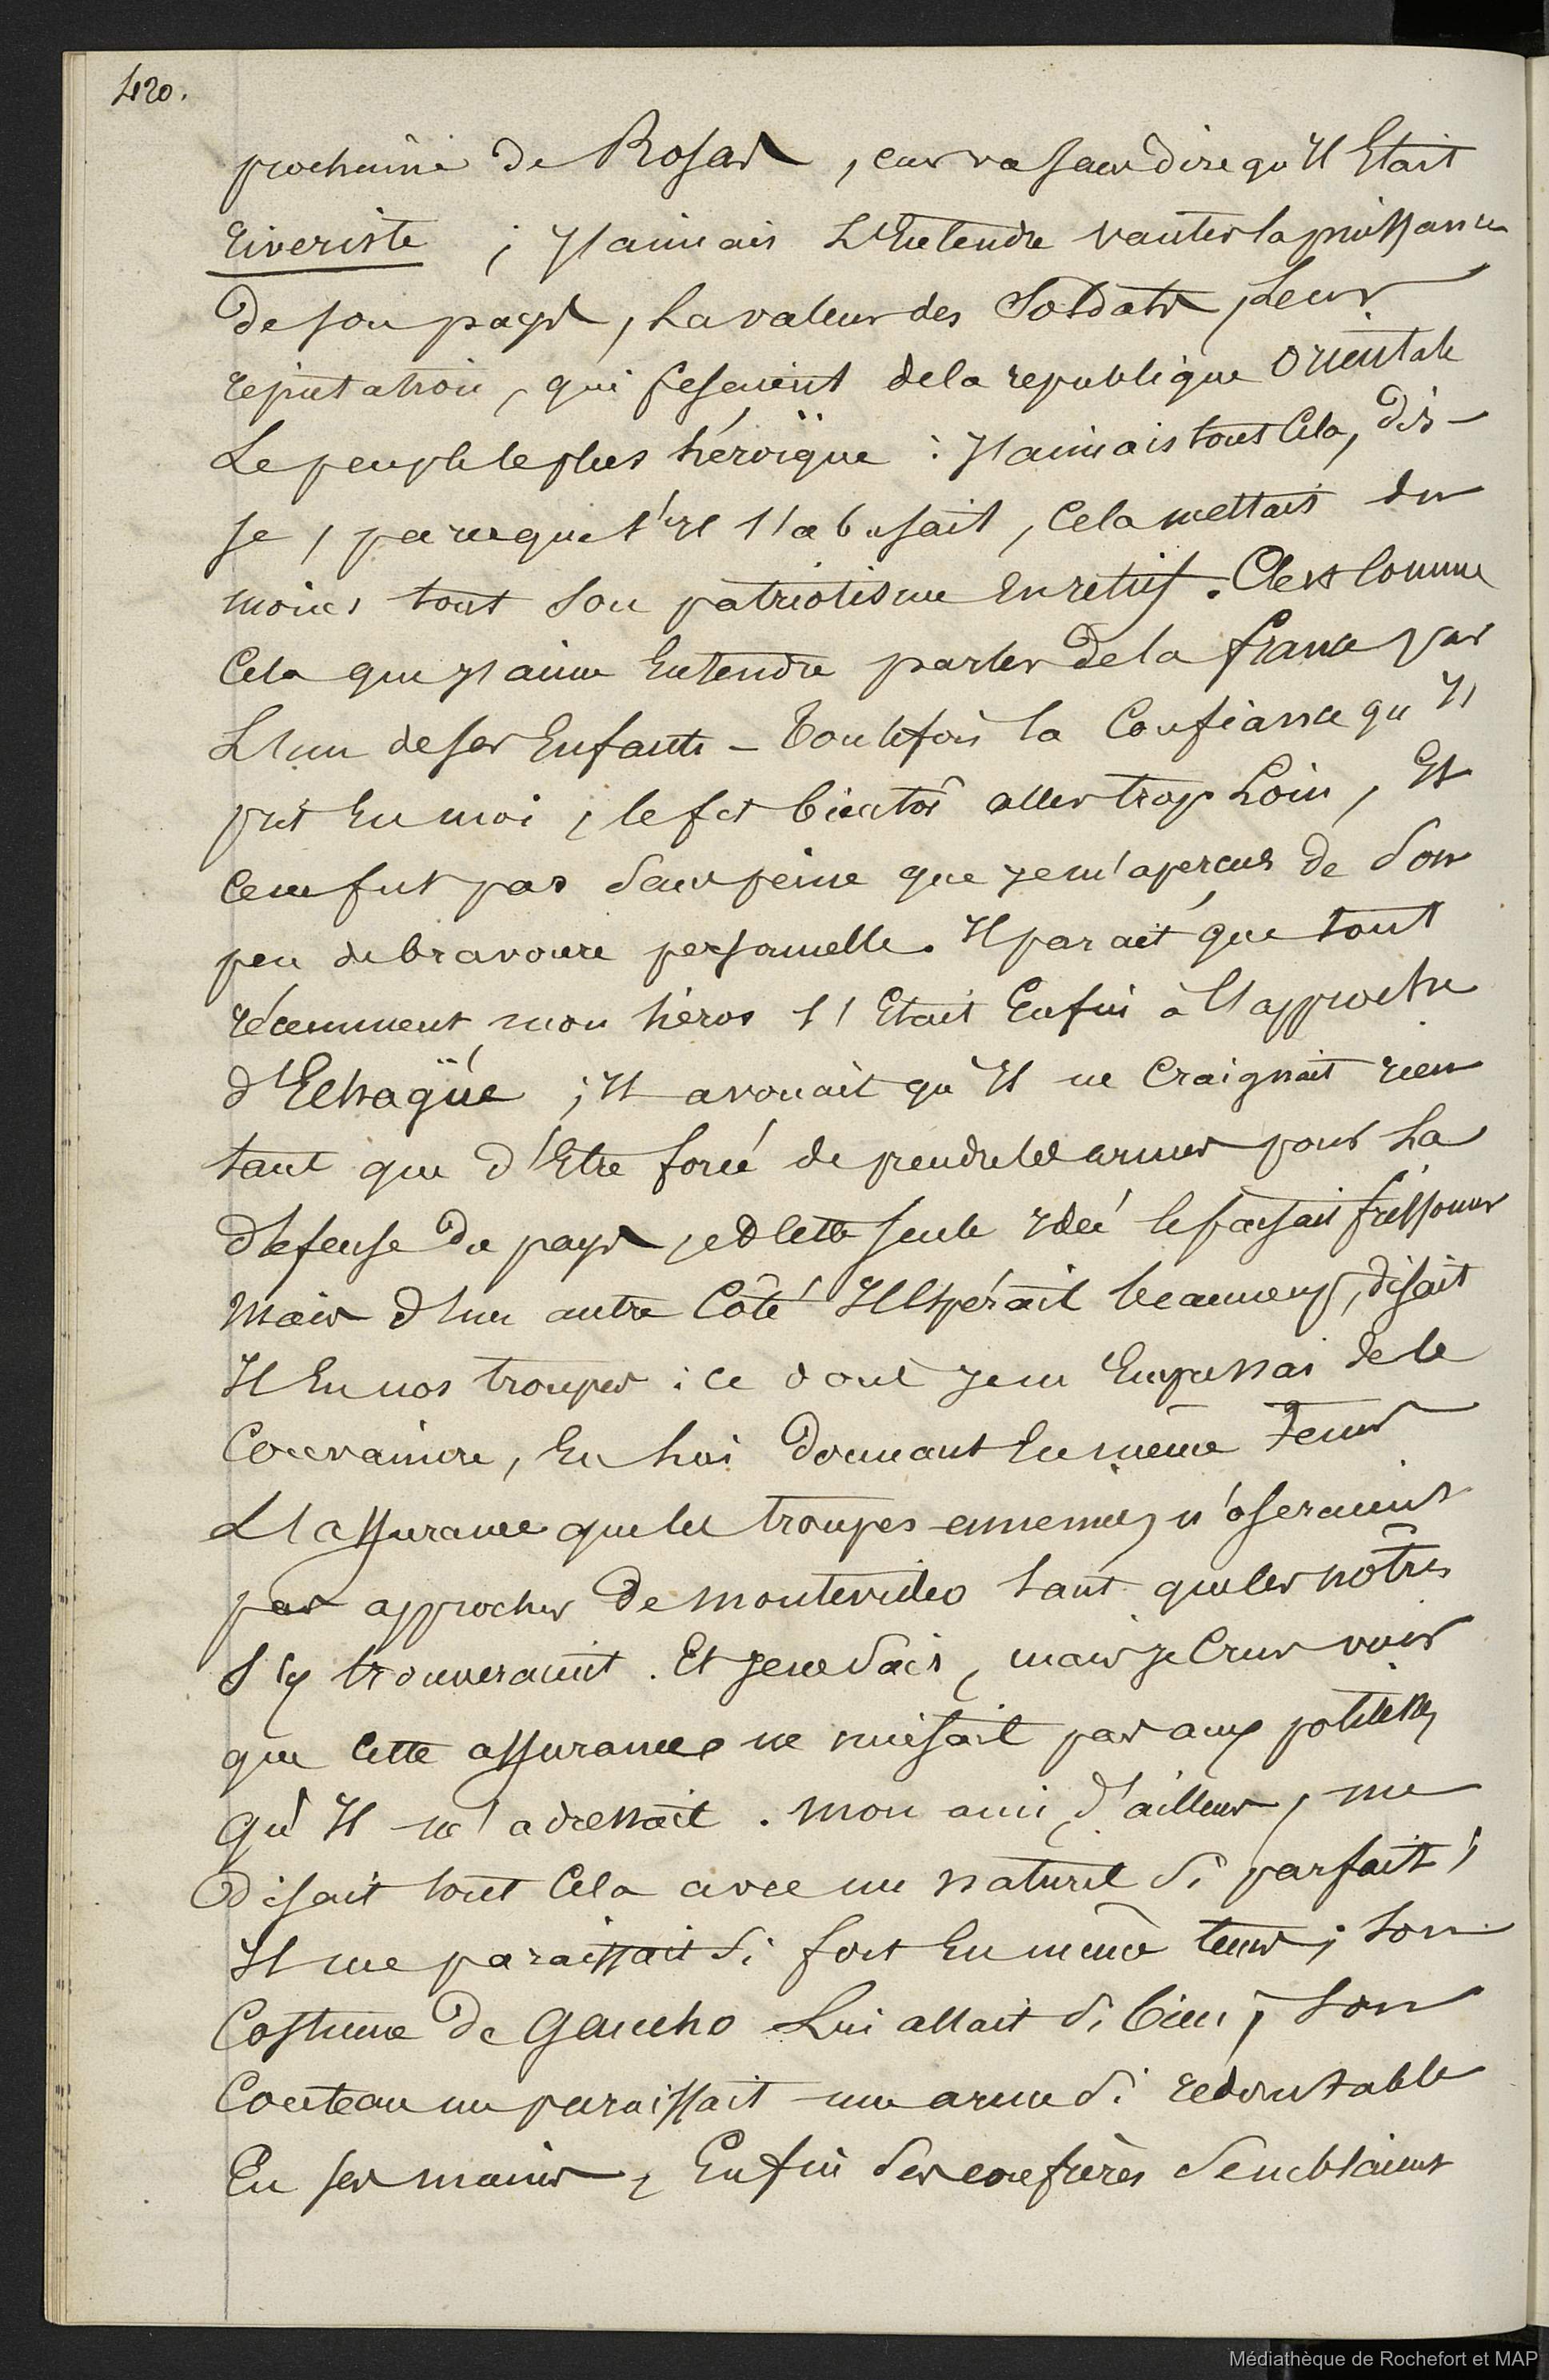 420.
prochaine de Rosas, car va sans dire qu'Il Etait
riveriste ; J'aimais L'Entendre vanter la puissance
de son pays, La valeur des Soldats, Leur
reputation, qui fesaient de la republique Orientale
Le peuple le plus héroïque : J'aimais tout Cela, dis-
je, parceque s'Il s'abusait, Cela mettait du
moins tout son patriotisme En relief. C'est Comme
Cela que J'aime Entendre parler de la france par
L'un de ses Enfants - Toutefois la Confiance qu'Il
prit En moi, le fit bientôt aller trop Loin, Et
Ce ne fut pas Sans peine que je m'aperçus de Son
peu de bravoure personnelle. Il parait que tout
récemment mon héros s'Etait Enfui à l'approche
d'Echagüe ; Il avouait qu'Il ne Craignait rien
tant que d'Etre forcé de prendre les armes pour La
défense du pays, et Cette seule Idée le faisait frissonner
Mais d'un autre Côté Il Espérait beaucoup, disait
Il En nos troupes : ce dont je m'Empressai de le
Convaincre, En Lui donnant En même tems
L'assurance que les troupes ennemies n'oseraient
pas approcher de Montevideo tant que les nôtres
s'y trouveraient. Et je ne Sais, mais je Crus voir
que Cette assurance ne nuisait pas aux politesses
qu'Il m'adressait. Mon ami, d'ailleurs, me
disait tout Cela avec un naturel Si parfait ;
Il me paraissait Si fort En même tems ; Son
Costume de Gaucho Lui allait Si bien ; Son
Couteau me paraissait une arme Si redoutable
En ses mains, Enfin Ses confrères Semblaient
Médiathèque de Rochefort et MAP